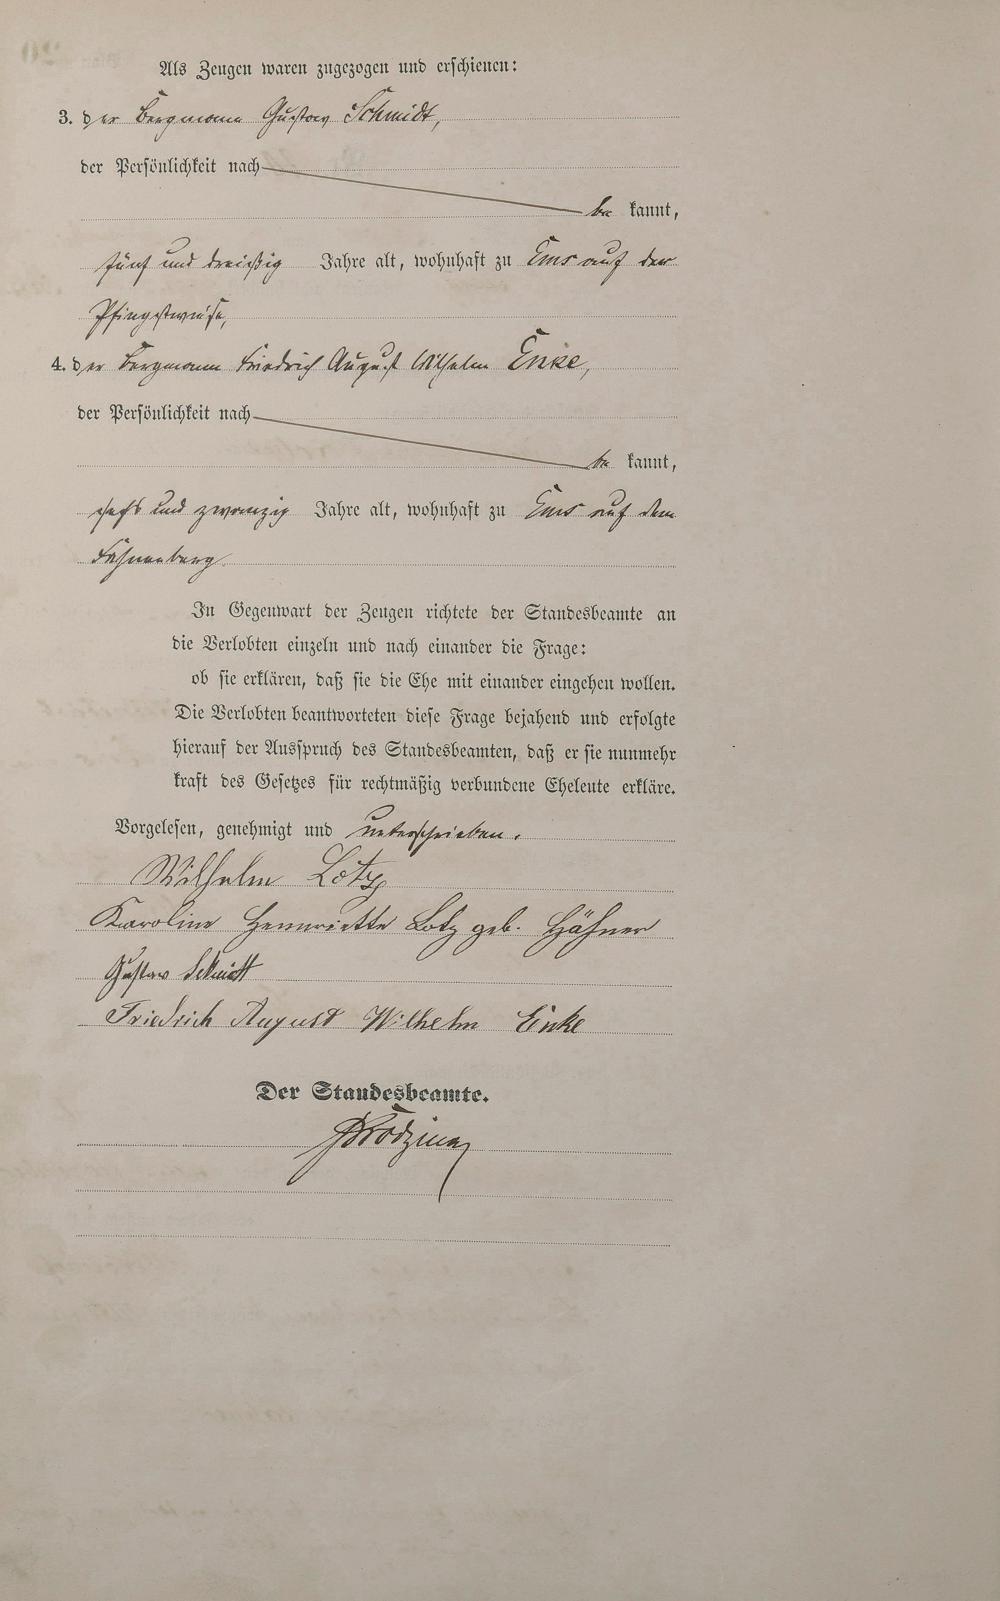 Als Zeugen waren zugezogen und erschienen:
3. der Bergmann Gustav Schmidt,
der Persönlichkeit nach
be kannt,
fünf und dreißig Jahre alt, wohnhaft zu Ems auf der
Pfingstwiese,
4. der Bergmann Friedrich August Wilhelm Enke,
der Persönlichkeit nach
be kannt,
sechs und zwanzig Jahre alt, wohnhaft zu Ems auf dem
Fahnenberg.
In Gegenwart der Zeugen richtete der Standesbeamte an
die Verlobten einzeln und nach einander die Frage:
ob sie erklären, daß sie die Ehe mit einander eingehen wollen.
Die Verlobten beantworteten diese Frage bejahend und erfolgte
hierauf der Ausspruch des Standesbeamten, daß er sie nunmehr
kraft des Gesetzes für rechtmäßig verbundene Eheleute erkläre.
Vorgelesen, genehmigt und unterschrieben.
Wilhelm Lotz
Karoline Henriette Lotz geb. Hähner
Gustav Schmidt
Friedrich August Wilhelm Enke
Der Standesbeamte.